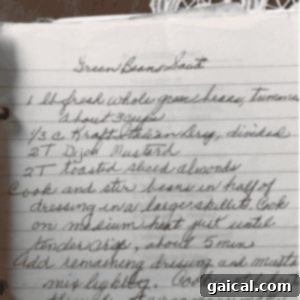 Green Beans Saut
1 lb fresh whole green beans, trimmed
about 3 cups
1/3 c Kraft Italian Drsg, divided
2 T Dijon Mustard
2T toasted sliced almonds
Cook and stir beans in half of
dressing in a large skillet. Cook
on medium heat just until
tender crisp, about 5 min
Add remaining dressing and
mix lightly. Cook
gaical.com